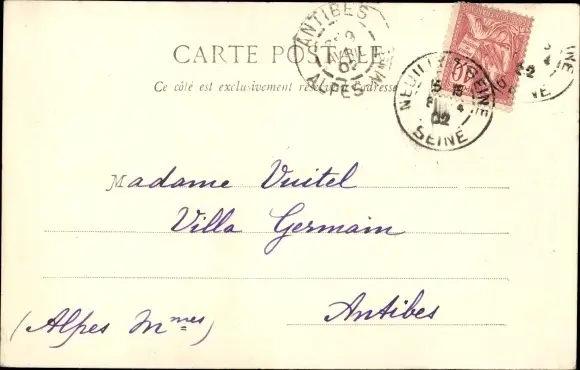 CARTE POSTALE
Ce côté est exclusivement réservé à l'adresse
ANTIBES
9
AVRIL
02
ALPES MMES
NEUILLY S SEINE
15 15
2 4
02
SEINE
10
Madame Vuitel
Villa Germain
Antibes
(Alpes Mmes)